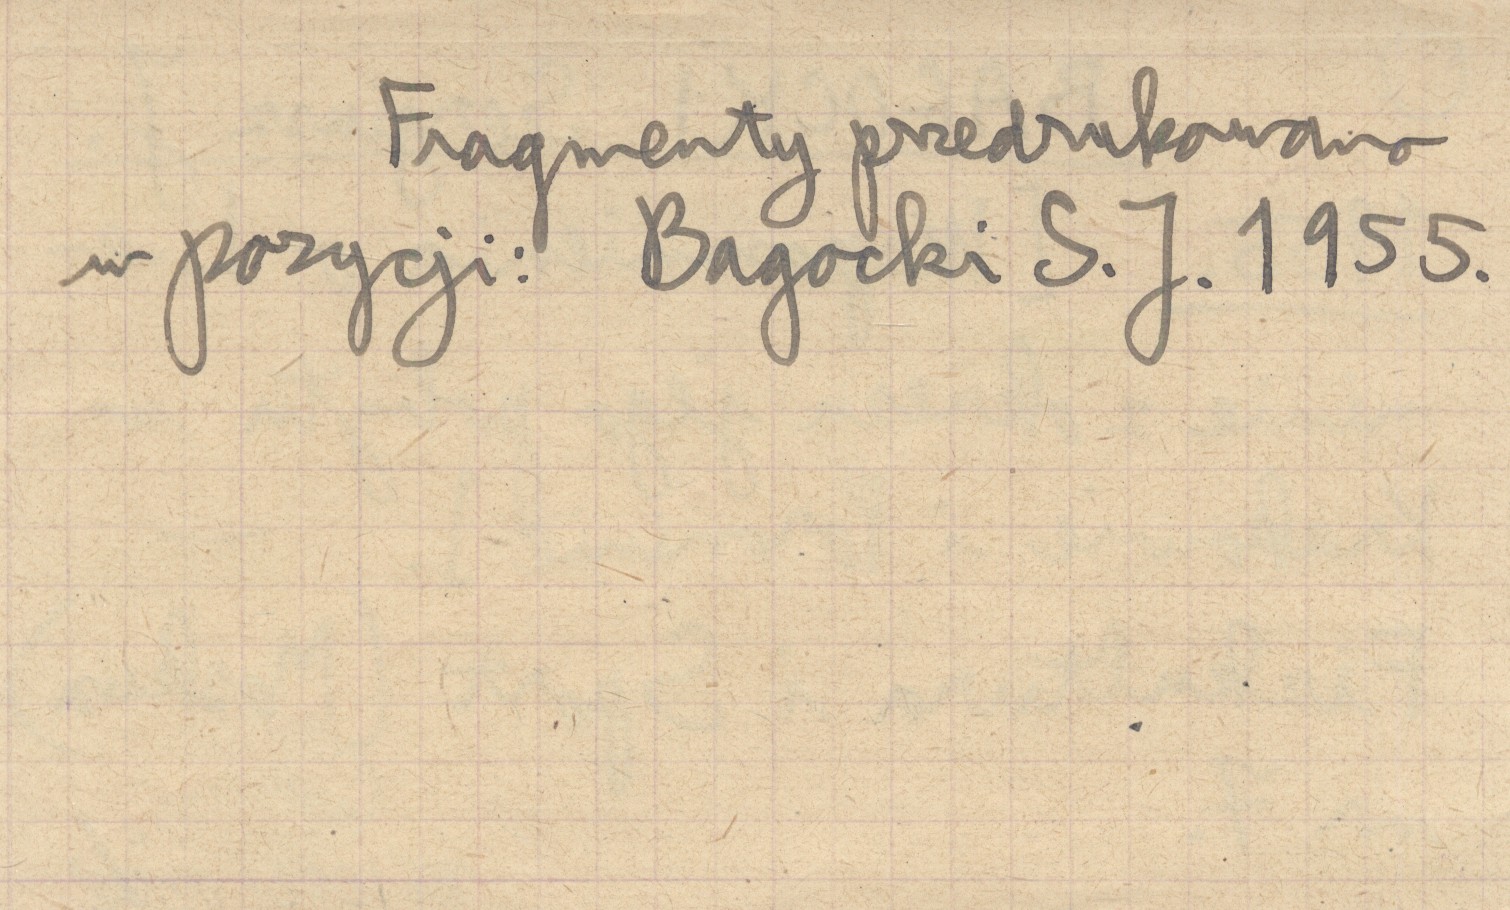 Fragmenty przedrukowano
w pozycji: Bagocki S.J. 1955.